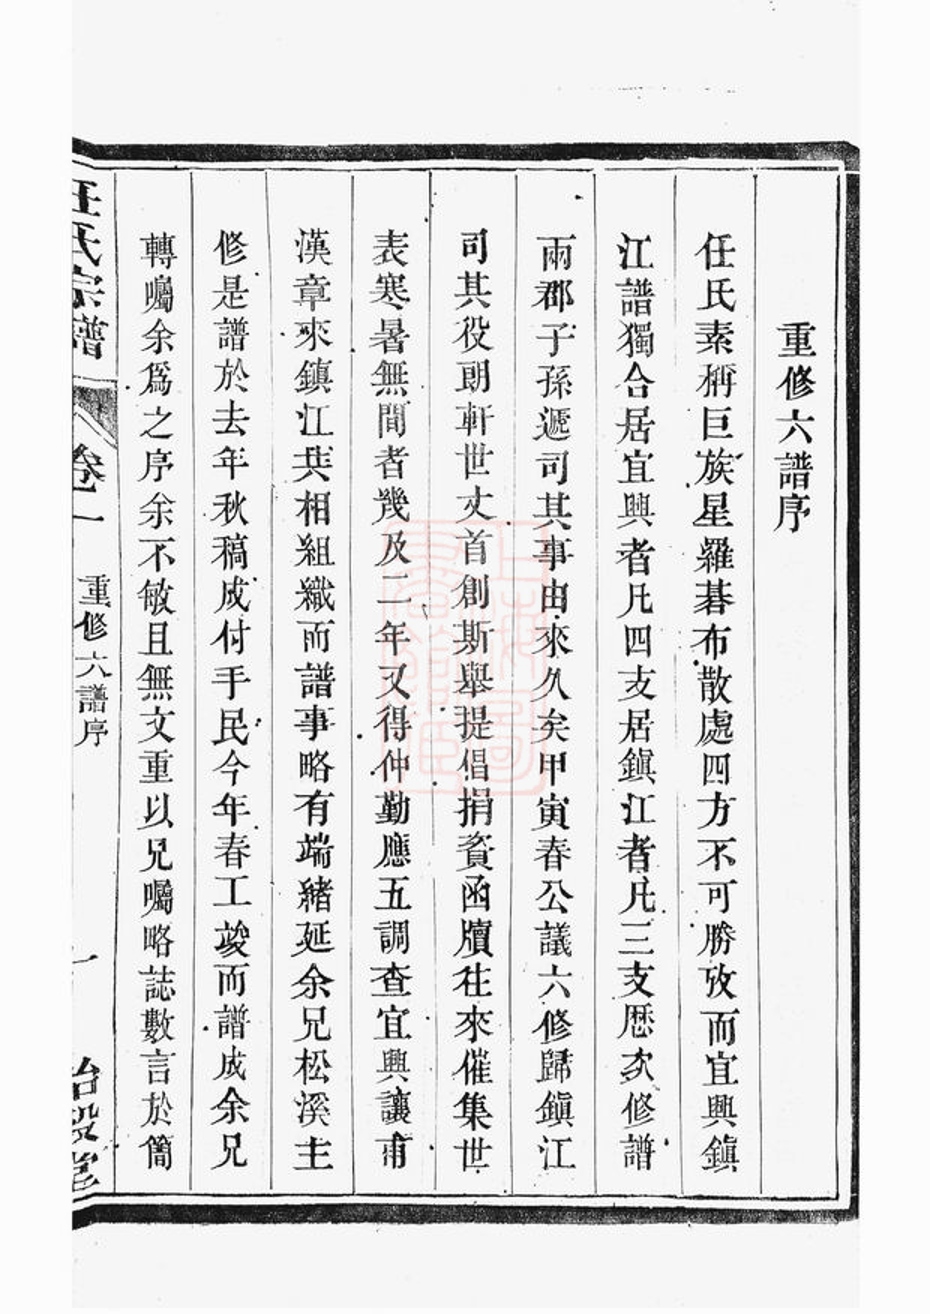 重修六譜序
任氏素稱巨族星羅碁布散處四方不可勝攷而宜興鎮
江譜獨合居宜興者凡四支居鎮江者凡三支歷次修譜
兩郡子孫遞司其事由來久矣甲寅春公議六修歸鎮江
司其役朗軒世丈首創斯舉提倡捐資函牘往來催集世
表寒暑無間者幾及二年又得仲勤應五調查宜興讓甫
漢章來鎮江共相組織而譜事略有端緒延余兄松溪主
修是譜於去年秋稿成付手民今年春工竣而譜成余兄
轉囑余爲之序余不敏且無文重以兄囑略誌數言於簡
任氏宗譜 卷一 重修六譜序 一